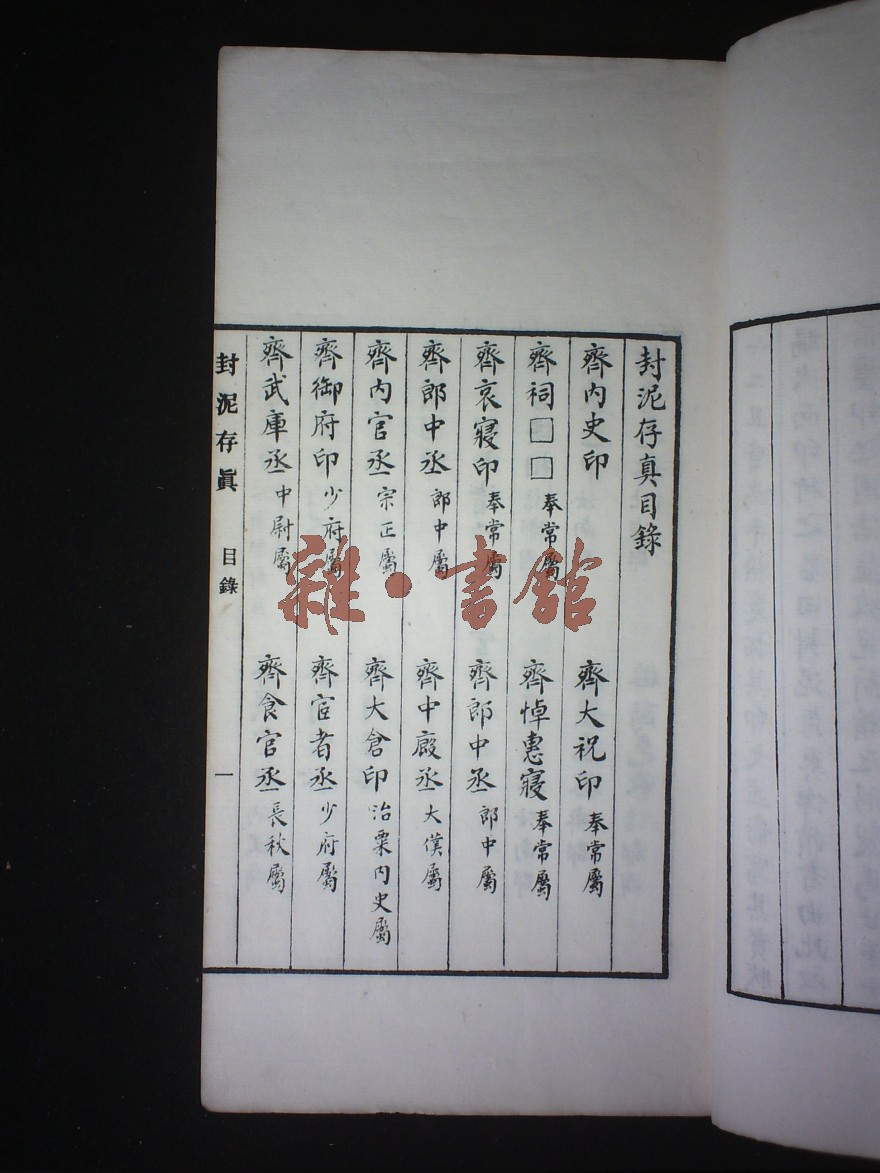 封泥存真目錄
齊內史印 齊大祝印 奉常屬
齊祠□□ 奉常屬 齊悼惠寢 奉常屬
齊哀寢印 奉常屬 齊郎中丞 郎中屬
齊郎中丞 郎中屬 齊中廄丞 大僕屬
齊內官丞 宗正屬 齊大倉印 治粟內史屬
齊御府印 少府屬 齊宦者丞 少府屬
齊武庫丞 中尉屬 齊食官丞 長秋屬
封泥存眞 目錄 一
雜·書館